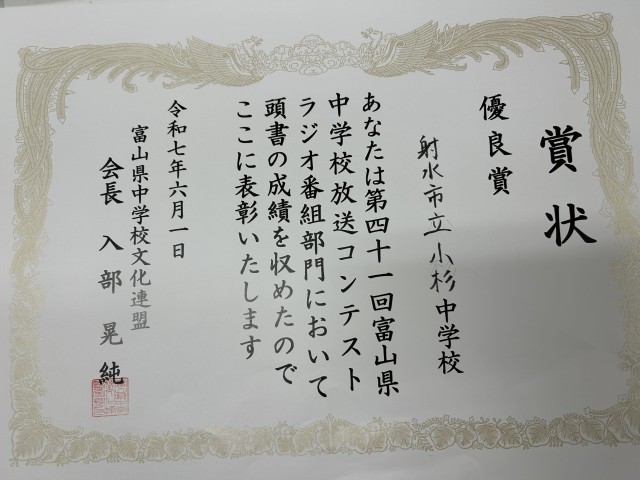 賞状
優良賞
射水市立小杉中学校
あなたは第四十一回富山県
中学校放送コンテスト
ラジオ番組部門において
頭書の成績を収めたので
ここに表彰いたします
令和七年六月一日
富山県中学校文化連盟
会長 入部晃純